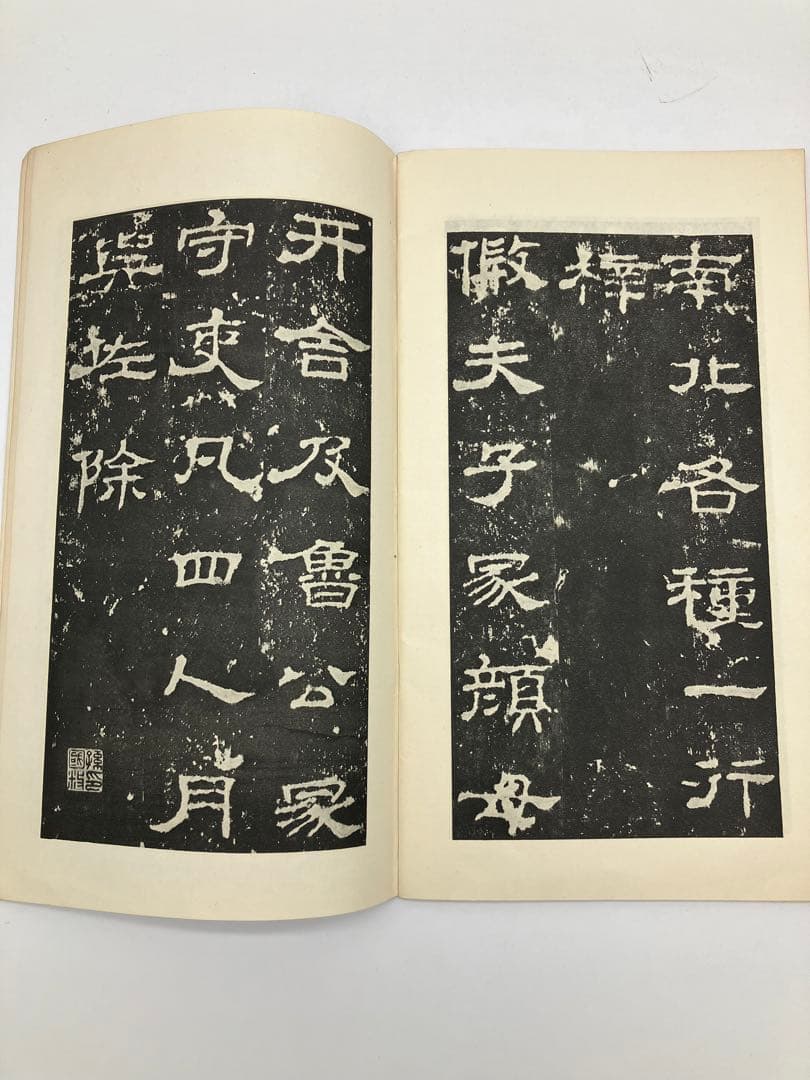 南北各種一行
梓
假夫子冢顏母
井舍及魯公冢
守吏凡四人月
與佐除